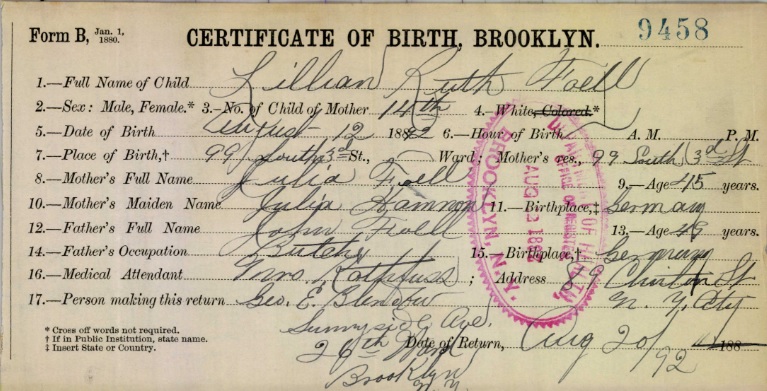 Form B, Jan. 1, 1880. CERTIFICATE OF BIRTH, BROOKLYN. 9458
1.—Full Name of Child Lillian Ruth Foell
2.—Sex: Male, Female.* 3.—No. of Child of Mother 14th 4.—White, Colored.*
5.—Date of Birth August 12 1892 6.—Hour of Birth A. M. P. M.
7.—Place of Birth,† 99 South 3d St., Ward; Mother's res., 99 South 3d St
8.—Mother's Full Name Julia Foell 9.—Age 45 years.
10.—Mother's Maiden Name Julia 11.—Birthplace,‡ Germany
12.—Father's Full Name John Foell 13.—Age 49 years.
14.—Father's Occupation Butcher 15.—Birthplace,‡ Germany
16.—Medical Attendant Mrs. ; Address 89 Clinton St
17.—Person making this return Geo. E. N. Y. City
Sunnyside Ave.
* Cross off words not required.
† If in Public Institution, state name.
‡ Insert State or Country.
26th Ward Date of Return, Aug 20/92 188
Brooklyn
N. Y.
BROOKLYN, N. Y.